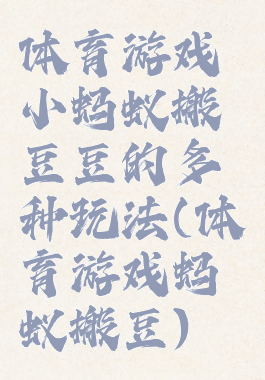 体育游戏
小蚂蚁搬
豆豆的多
种玩法(体
育游戏蚂
蚁搬豆)